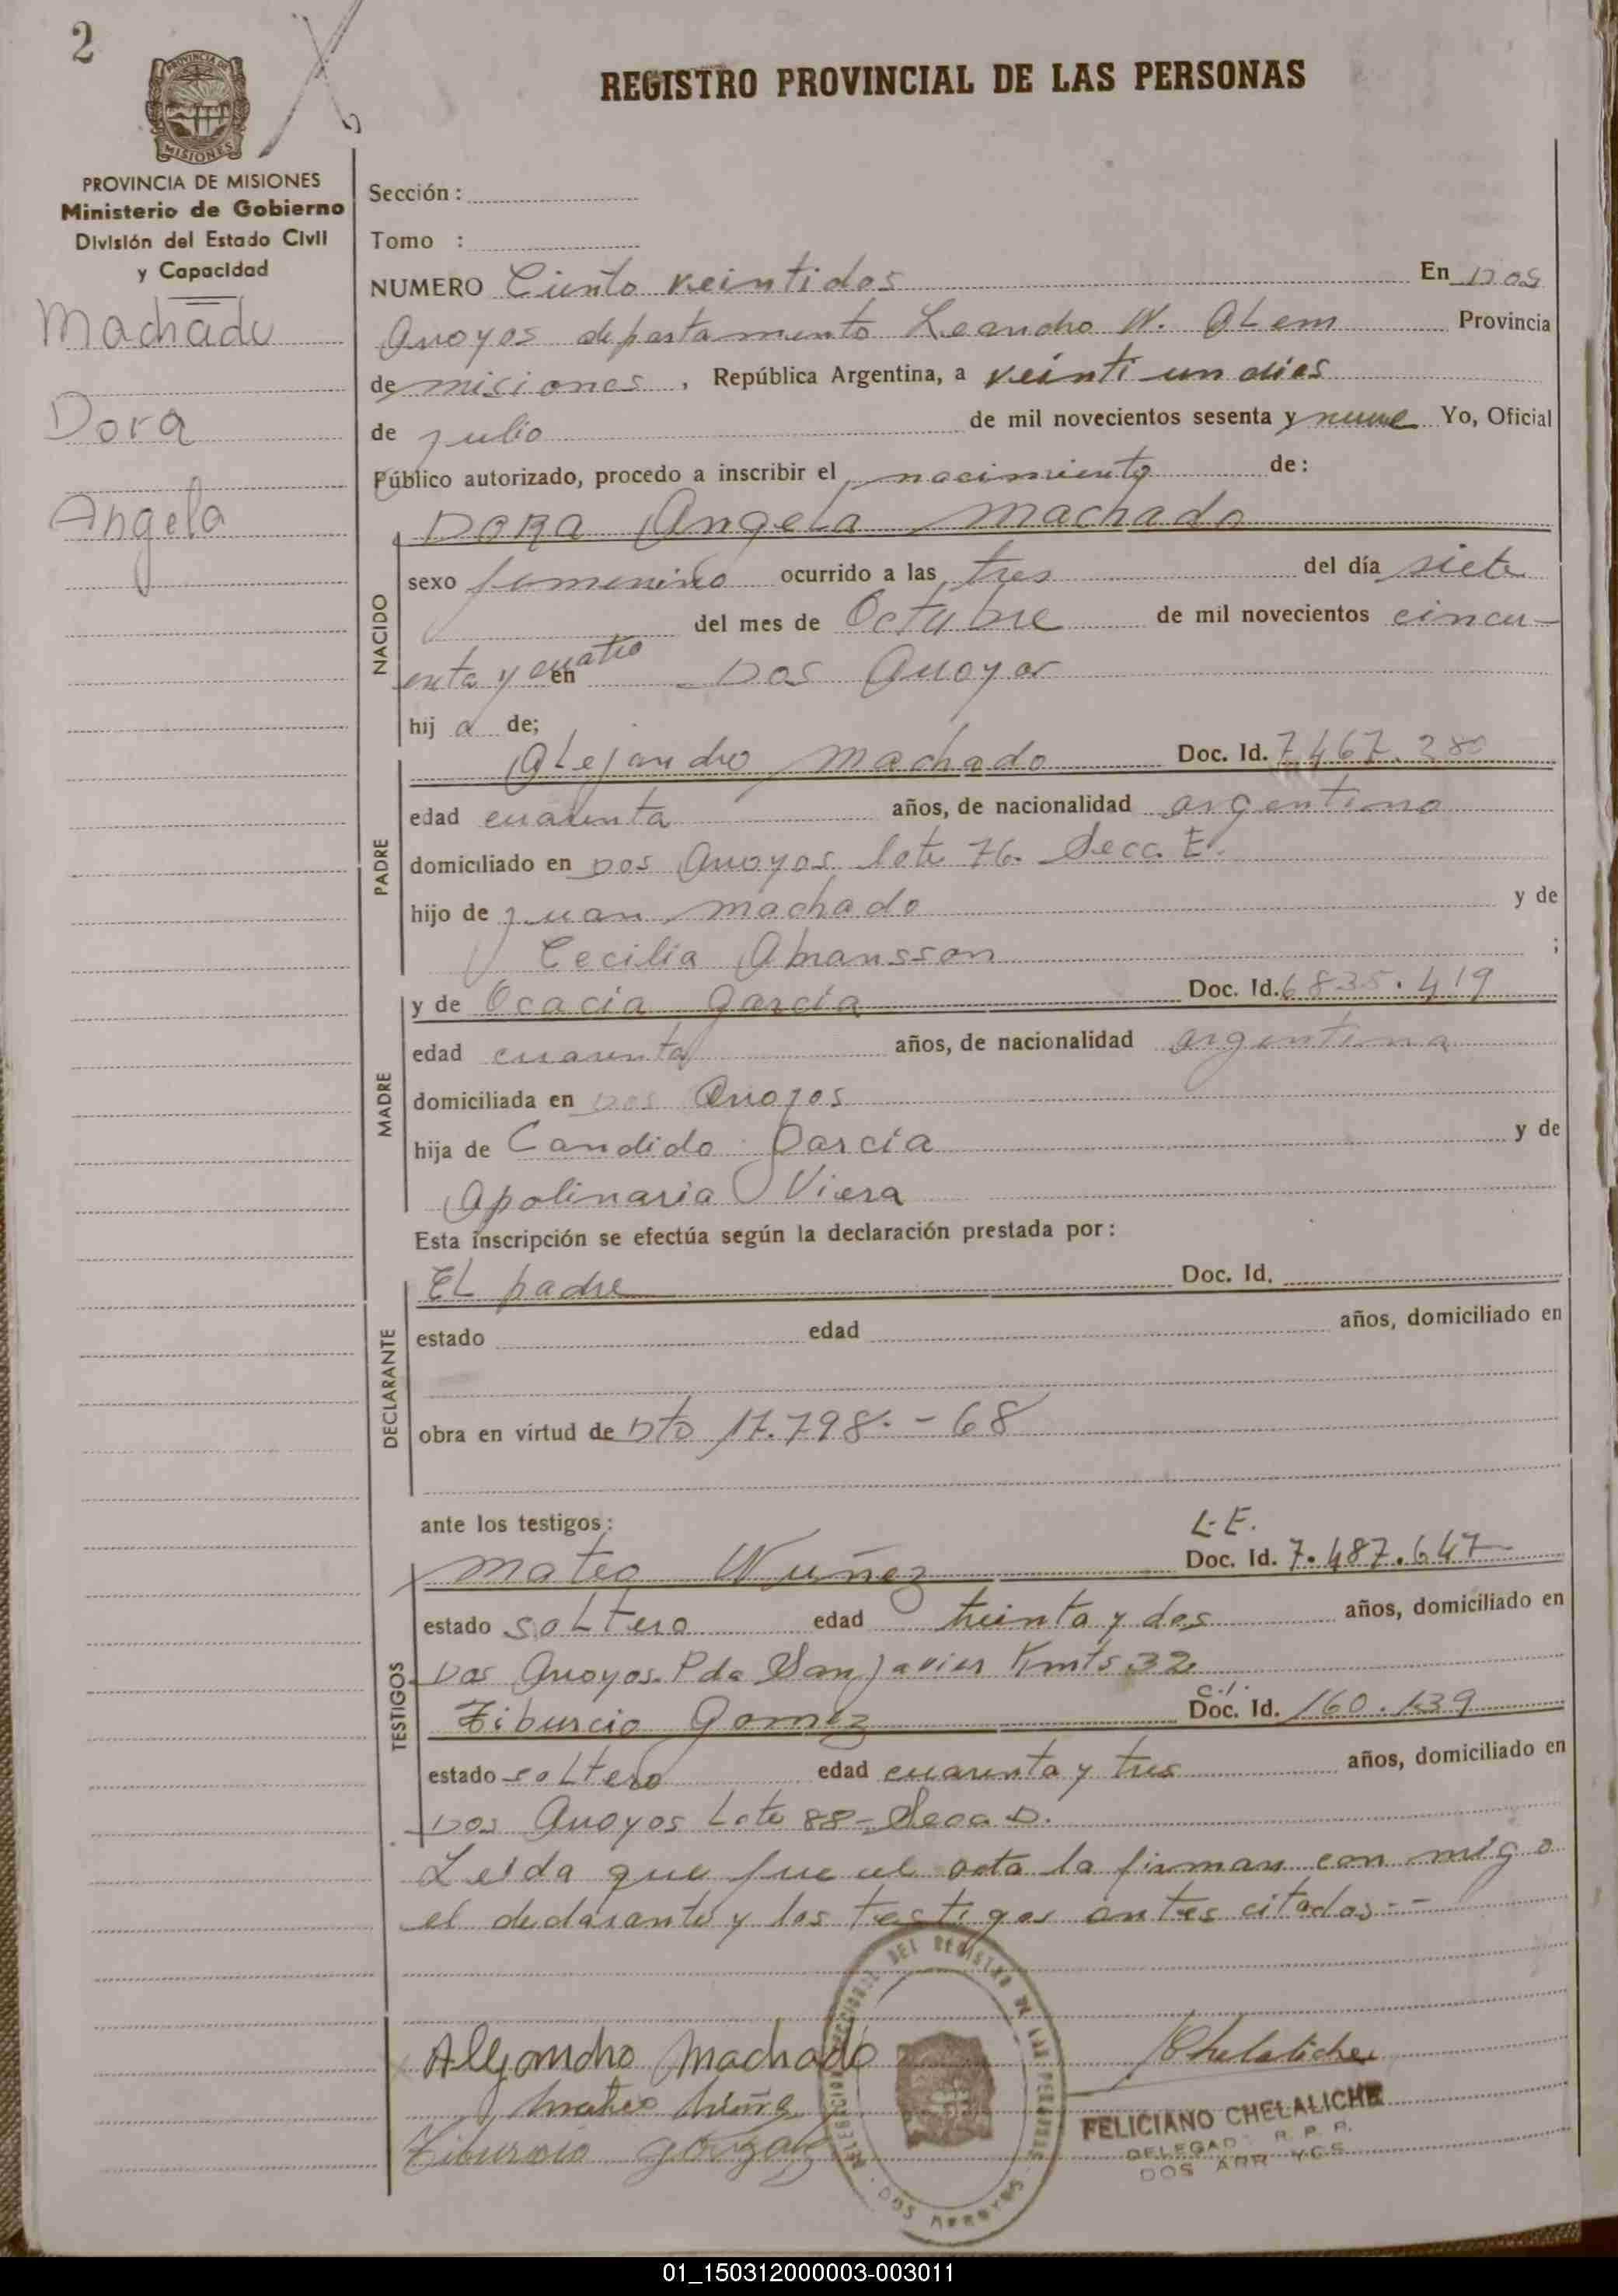 2
REGISTRO PROVINCIAL DE LAS PERSONAS
PROVINCIA DE MISIONES
MISIONES
PROVINCIA DE MISIONES
Ministerio de Gobierno
División del Estado Civil
y Capacidad
Machado
Dora
Angela
Sección :
Tomo :
NUMERO Ciento veintidos En Dos
Arroyos departamento Leandro N. ALem Provincia
de misiones , República Argentina, a veinti un dias
de julio de mil novecientos sesenta y nueve Yo, Oficial
Público autorizado, procedo a inscribir el nacimiento de:
DORA Angela Machado
NACIDO
sexo femenino ocurrido a las tres del día siete
del mes de Octubre de mil novecientos cincu-
enta y cuatro en Dos Arroyos
hij a de;
PADRE
ALejandro Machado Doc. Id. 7.467.280
edad cuarenta años, de nacionalidad argentino
domiciliado en Dos Arroyos lote 76. Secc. E.
hijo de Juan Machado y de
Cecilia ;
MADRE
y de Ocacia Garcia Doc. Id. 6835.419
edad cuarenta años, de nacionalidad argentina
domiciliada en Dos Arroyos
hija de Candido Garcia y de
Apolinaria Viera
Esta inscripción se efectúa según la declaración prestada por :
DECLARANTE
EL padre Doc. Id.
estado edad años, domiciliado en
obra en virtud de Dto 17.798.-68
ante los testigos :
TESTIGOS
L.E.
Mateo Nuñez Doc. Id. 7.487.647
estado soLtero edad treinta y dos años, domiciliado en
Dos Arroyos Pda San Javier Kmts 32
C.I.
Tiburcio Gomez Doc. Id. 160.139
estado soLtero edad cuarenta y tres años, domiciliado en
Dos Arroyos Lote 88 - Secc D.
Leida que fue el acta la firman con migo
el declarante y los testigos antes citados.-
Alejandro Machado
Mateo
Tiburcio
DEL REGISTRO DE LAS PERSONAS
DOS ARROYOS
Chelaliche
FELICIANO CHELALICHE
DELEGADO R. P. P.
DOS ARROYOS
01_150312000003-003011